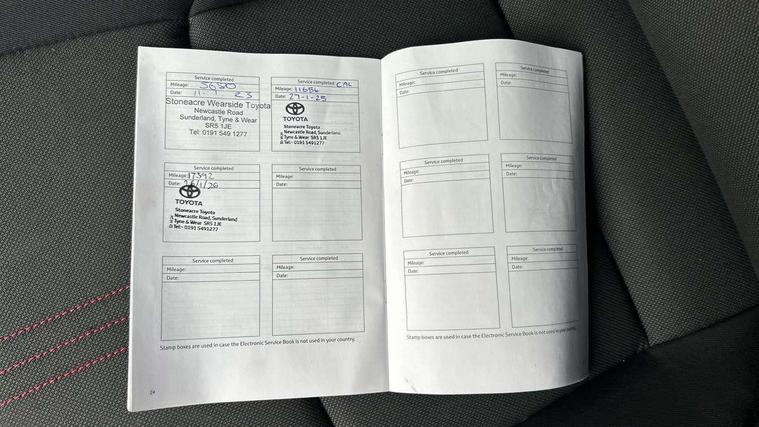 Service completed
Mileage: 5680
Date: 11-1 23
Stoneacre Wearside Toyota
Newcastle Road
Sunderland, Tyne & Wear
SR5 1JE
Tel: 0191 549 1277
Service completed CAL
Mileage: 11656
Date: 27-1-25
TOYOTA
Stoneacre Toyota
Newcastle Road, Sunderland
Tyne & Wear SR5 1JE
Tel:- 0191 5491277
Service completed
Mileage: 17392
Date: 26/1/26
TOYOTA
Stoneacre Toyota
Newcastle Road, Sunderland
Tyne & Wear SR5 1JE
Tel:- 0191 5491277
Service completed
Mileage:
Date:
Service completed
Mileage:
Date:
Service completed
Mileage:
Date:
Stamp boxes are used in case the Electronic Service Book is not used in your country.
24
Service completed
Mileage:
Date:
Service completed
Mileage:
Date:
Service completed
Mileage:
Date:
Service completed
Mileage:
Date:
Service completed
Mileage:
Date:
Service completed
Mileage:
Date:
Stamp boxes are used in case the Electronic Service Book is not used in your country.